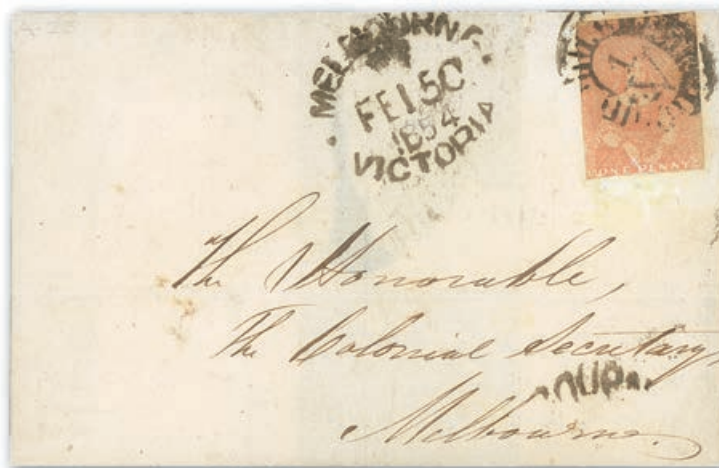 MELBOURNE
FE 15 C
1854
VICTORIA
1
ONE PENNY
The Honorable,
The Colonial Secretary,
OURN
Melbourne.